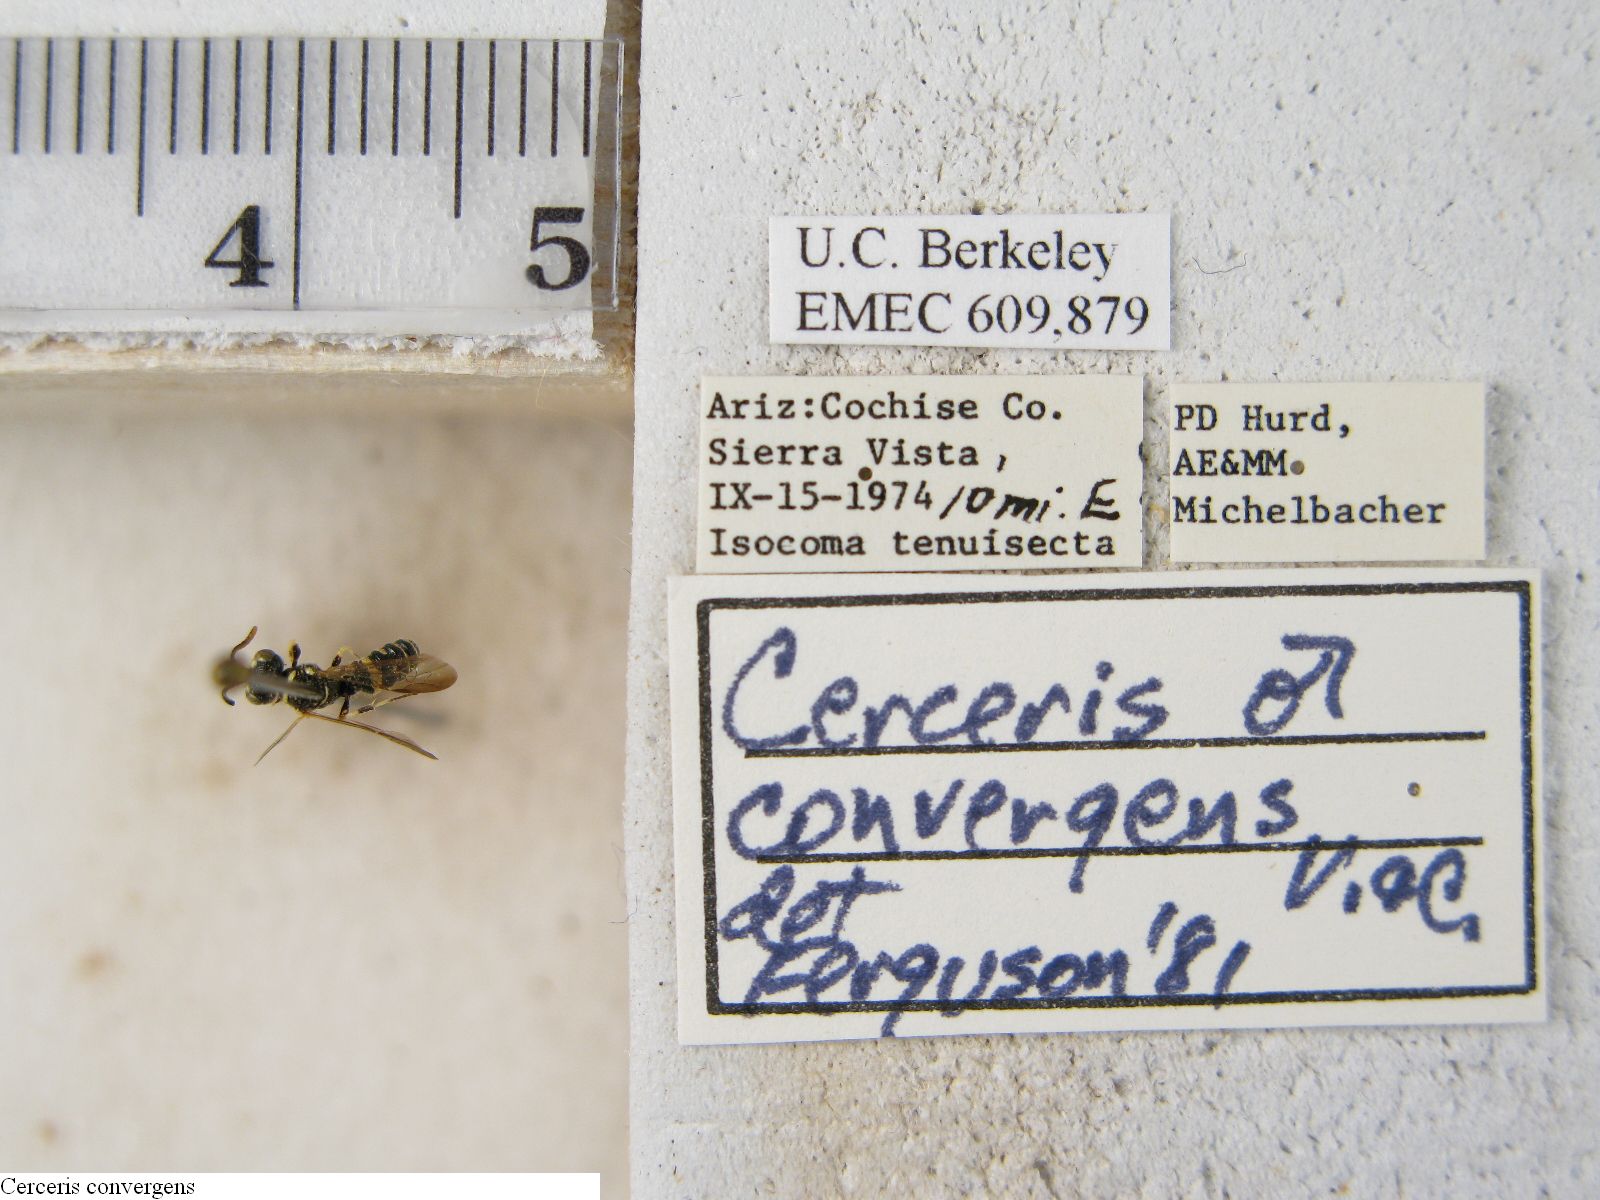 4 5
U.C. Berkeley
EMEC 609,879
Ariz:Cochise Co.
Sierra Vista,
IX-15-1974 10mi. E
Isocoma tenuisecta
PD Hurd,
AE&MM.
Michelbacher
Cerceris ♂
convergens
V.&C.
det
Ferguson '81
Cerceris convergens